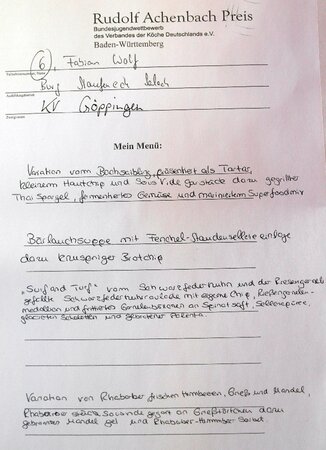 Rudolf Achenbach Preis
Bundesjugendwettbewerb
des Verbandes der Köche Deutschlands e.V.
Baden-Württemberg
6, Fabian Wolf
Burg Staufeneck
KV Göppingen
Mein Menü:
Variation vom Bachsaibling, präsentiert als Tartar,
kleinem Hautchip und Sous Vide gegrillter
Thai Spargel, fermentiertes Gemüse und mariniertem Superfoodmix
Bärlauchsuppe mit Fenchel-Staudensellerie einlage
dazu knuspriger Brotchip
"Surf and Turf" vom Schwarzfederhuhn und der Riesengarnele
gefüllte Schwarzfederhuhnroulade mit eigene Chip, Rießengarnelen-
medaillon und frittiertes Garnelen an Spinatsaft, Selleriepüree,
glacierten Schalotten und gebratener Polenta
Variation von Rhabarber frischen Himbeeren, Grieß und Mandel,
Rhabarber gegart an Grießtörtchen dazu
gebranntes Mandel gel und Rhabarber-Himbeer Sorbet